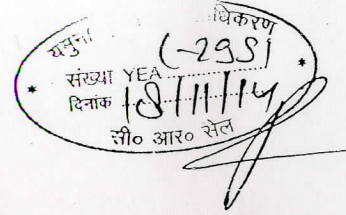 यमुना धिकरण
संख्या YEA (-295)
दिनांक 18/11/14
सी० आर० सेल